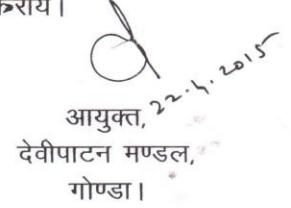 कराये।
22.4.2015
आयुक्त,
देवीपाटन मण्डल,
गोण्डा।